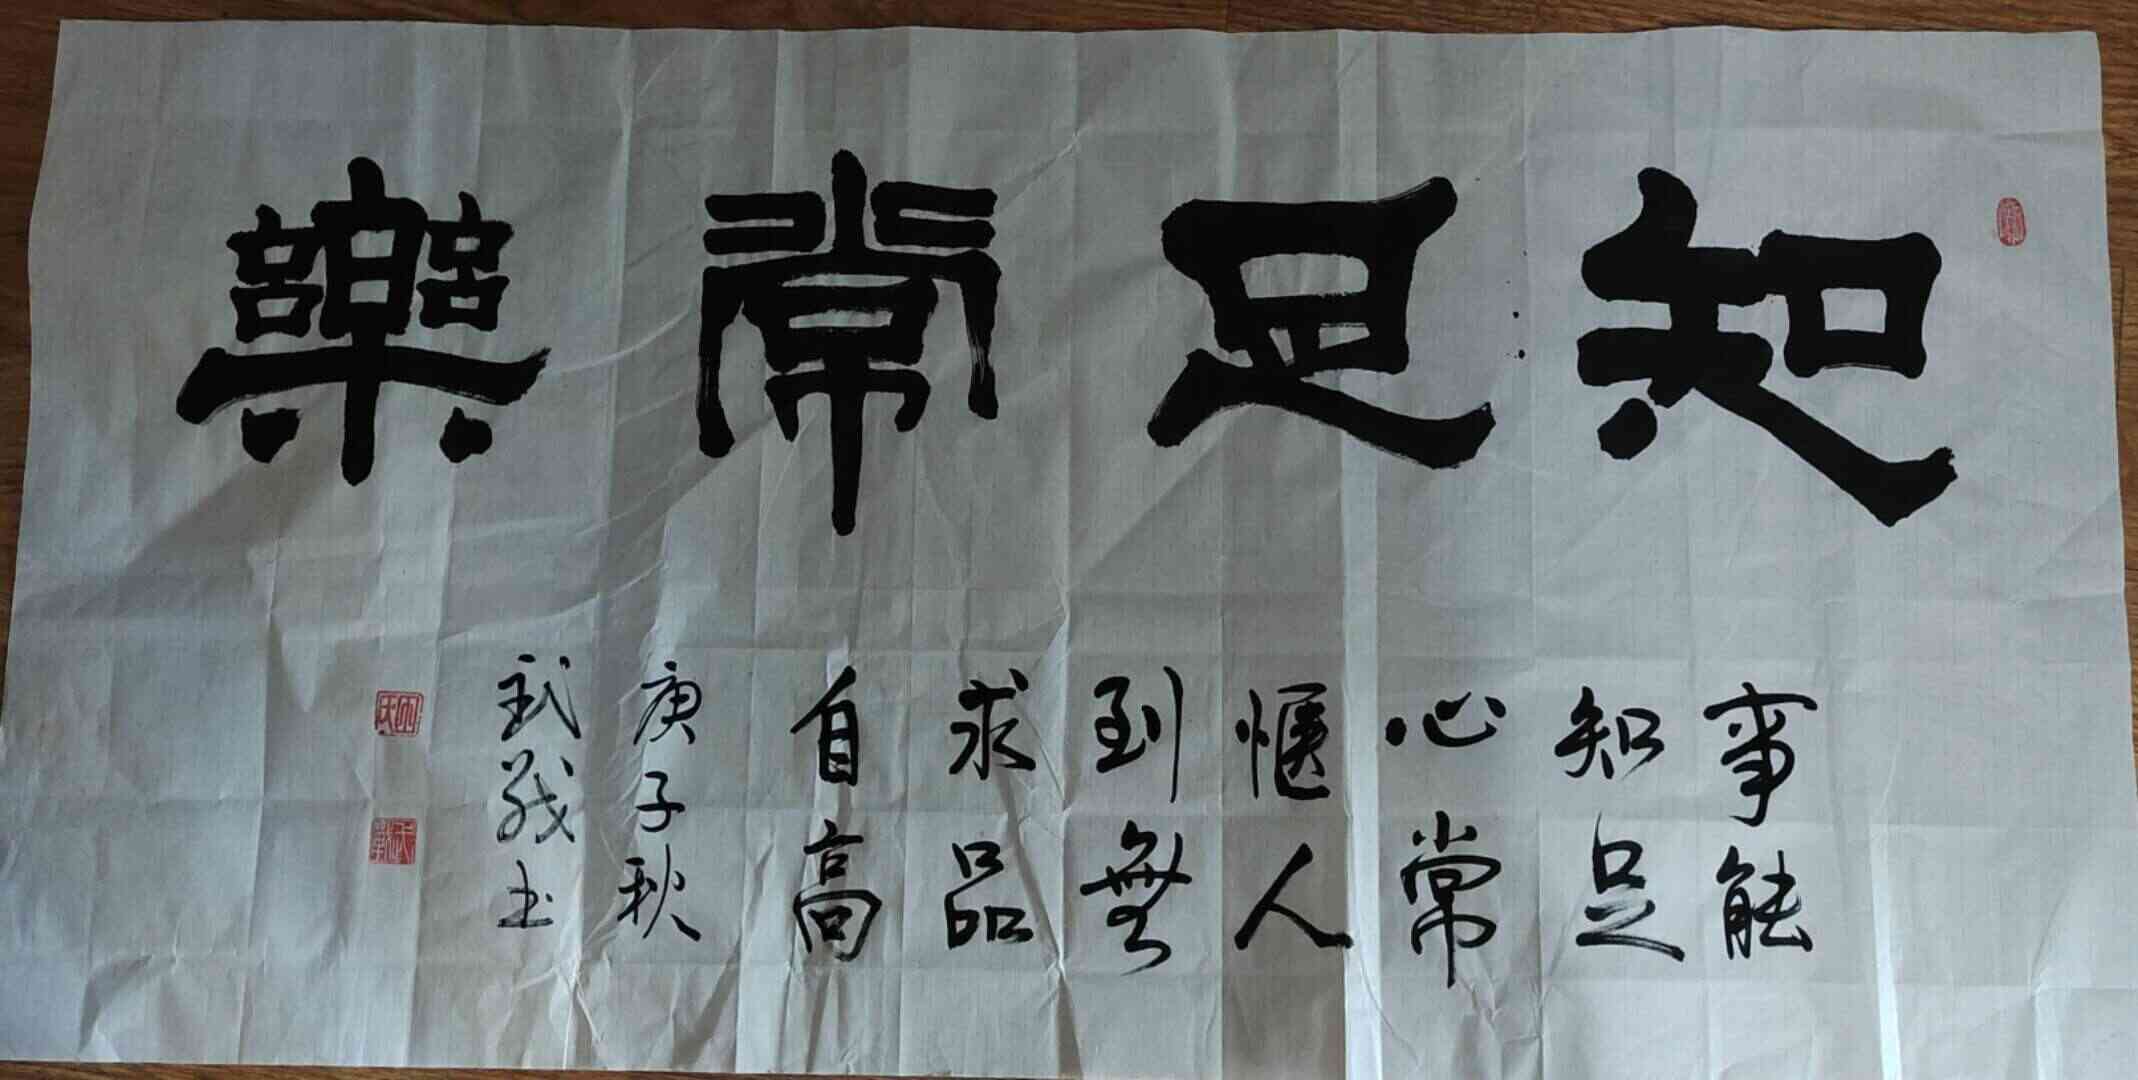 知足常樂
事能
知足
心常
惬人
到無
求品
自高
庚子秋
武戰书